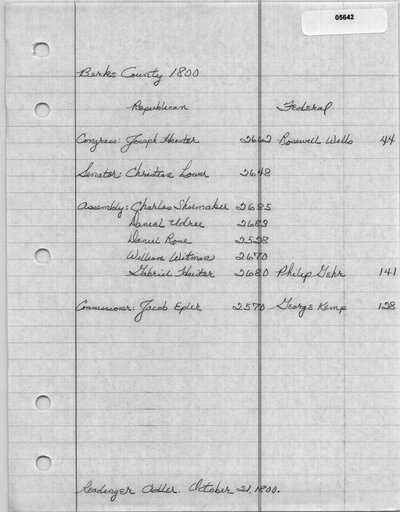 05642
Berks County 1800
Republican Federal
Congress: Joseph Hiester 2662 Rosewell Wells 44
Senator: Christian Lower 2648
Assembly: Charles Shoemaker 2685
Daniel Udree 2683
Daniel Rose 2528
William Witman 2670
Gabriel Hiester 2680 Philip Gehr 141
Commissioner: Jacob Epler 2570 George Kemp 128
Readinger Adler. October 21, 1800.